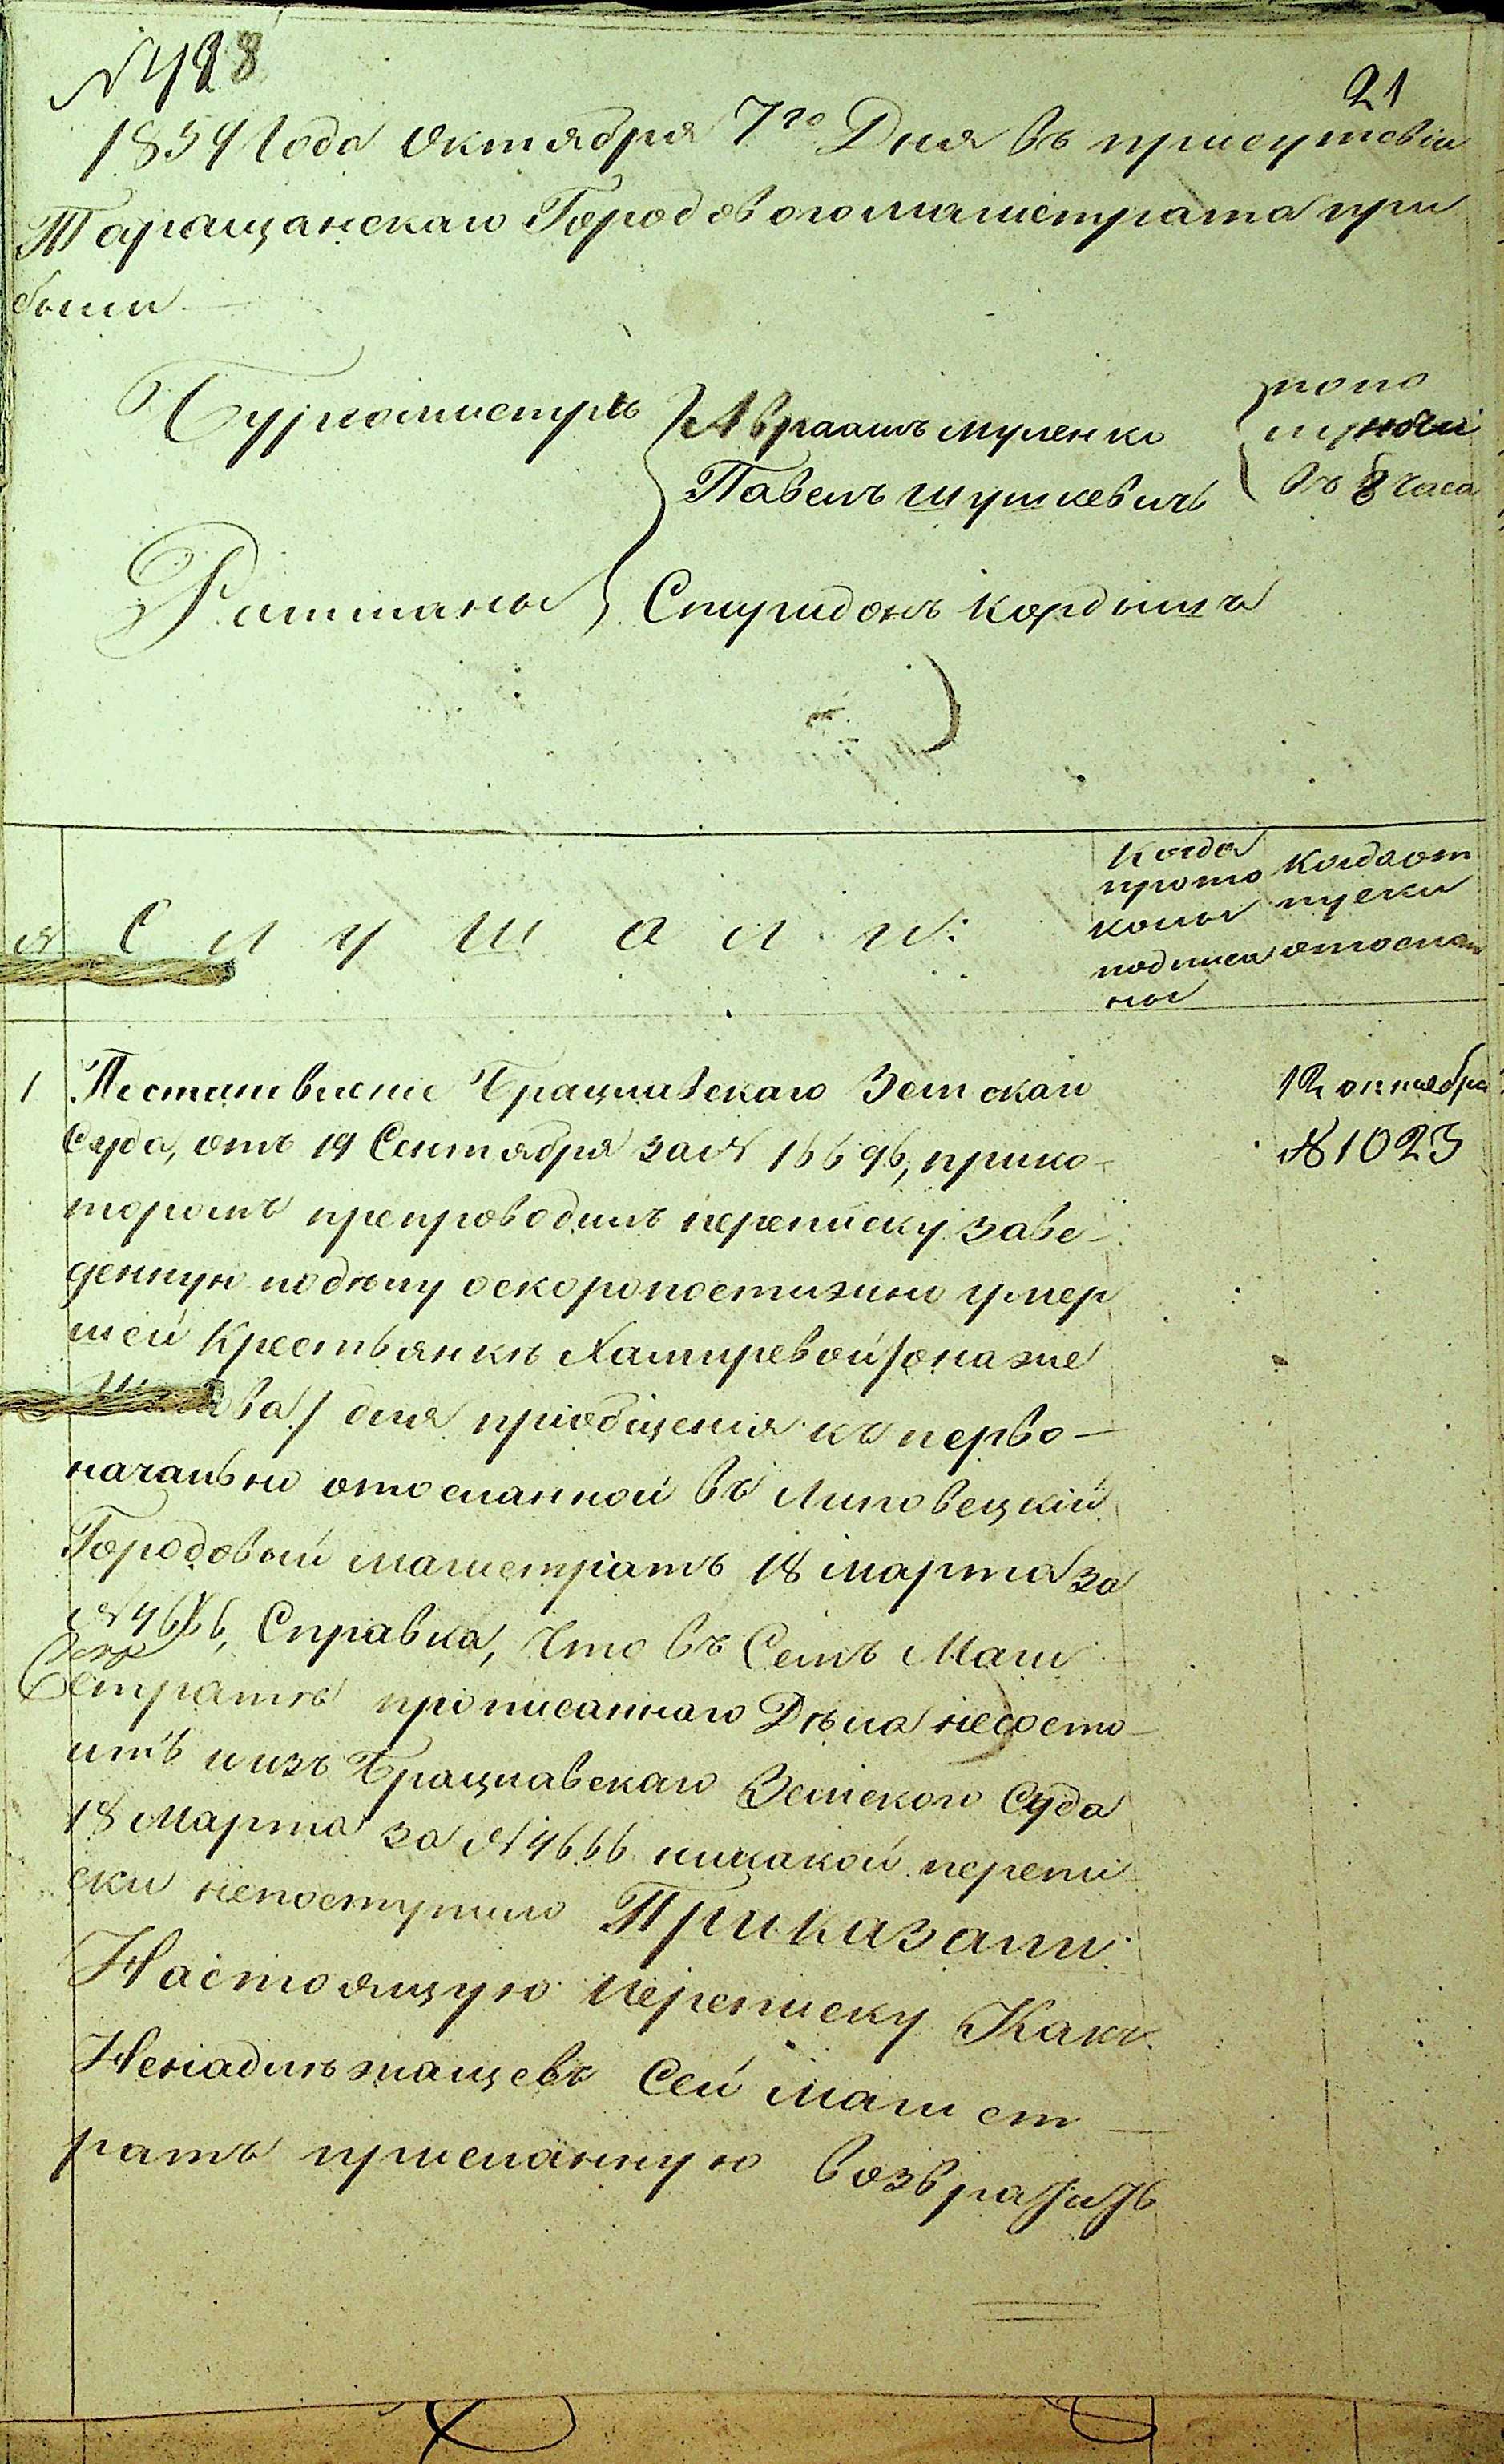 № 428
21
1854 года октября 7го Дня въ присутствіи
Таращанскаго Городового магистрата при
были
Бургомистръ Авраамъ Муленко
Павелъ Шушкевичъ
по по
луночи
въ 8 часа
Ратманы Спиридонъ Кордышъ
№ Слушали:
Когда
прото
колы
подписа
ны
Когда от
пуски
отослан
1 Постановленіе Брацлавскаго Земскаго
Суда, отъ 19 Сентября за № 16696, прико-
торомъ препроводилъ переписку заве-
денную подѣлу оскоропостижно умер
шей Крестьянкѣ Хамиревой /она же
ва/ для пріобщенія къ перво-
начально отосланной въ Липовецкій
Городовый магистратъ 18 марта за
№ 4666, Справка, Что въ Семъ Маги
стратѣ прописаннаго Дѣла несосто-
итъ и изъ Брацлавскаго Земскаго Суда
18 Марта за № 4666 никакой перепи
ски непоступило Приказали:
Настоящую переписку Какъ
Ненадлѣжащевъ Сей магист-
ратъ присланную возвратить
12 октября
№ 1023